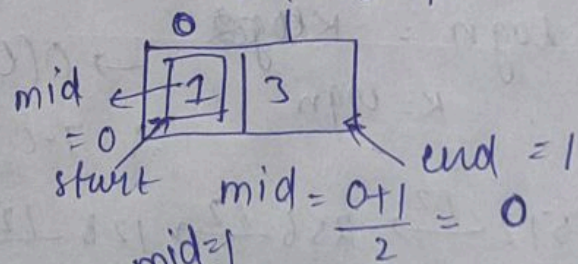 0 1
mid 1 3
= 0
start end = 1
mid = 0+1/2 = 0
mid=1